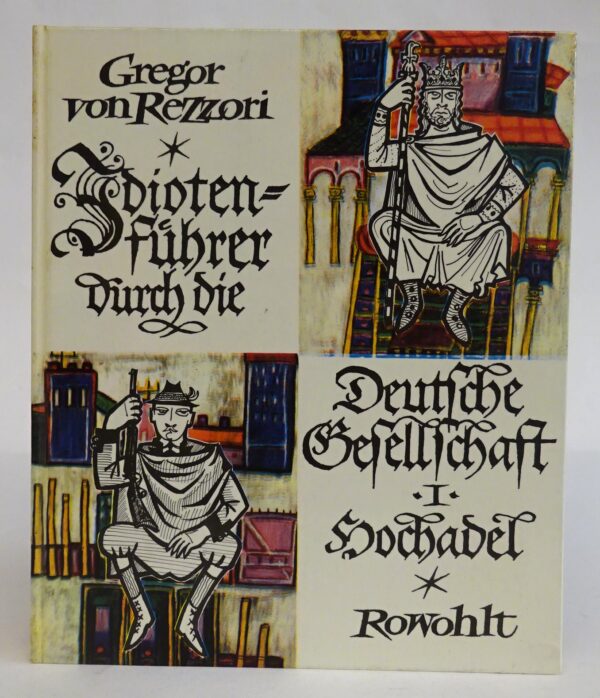 Gregor
von Rezzori
*
Idioten=
führer
durch die
Deutsche
Gesellschaft
·I·
Hochadel
*
Rowohlt